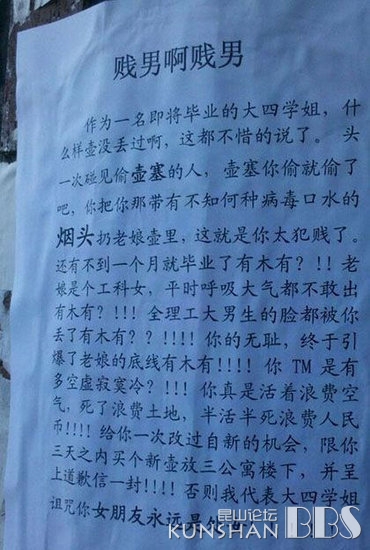 贱男啊贱男
作为一名即将毕业的大四学姐，什
么样壶没丢过啊，这都不惜的说了。头
一次碰见偷壶塞的人，壶塞你偷就偷了
吧，你把你那带有不知何种病毒口水的
烟头扔老娘壶里，这就是你太犯贱了。
还有不到一个月就毕业了有木有？！！老
娘是个工科女，平时呼吸大气都不敢出
有木有？！！！全理工大男生的脸都被你
丢了有木有？？！！！你的无耻，终于引
爆了老娘的底线有木有！！！！你 TM 是有
多空虚寂寞冷？！！！你真是活着浪费空
气，死了浪费土地，半活半死浪费人民
币！！！！给你一次改过自新的机会，限你
三天之内买个新壶放三公寓楼下，并呈
上道歉信一封！！！！否则我代表大四学姐
诅咒你女朋友永远是
昆山论坛
KUNSHAN BBS